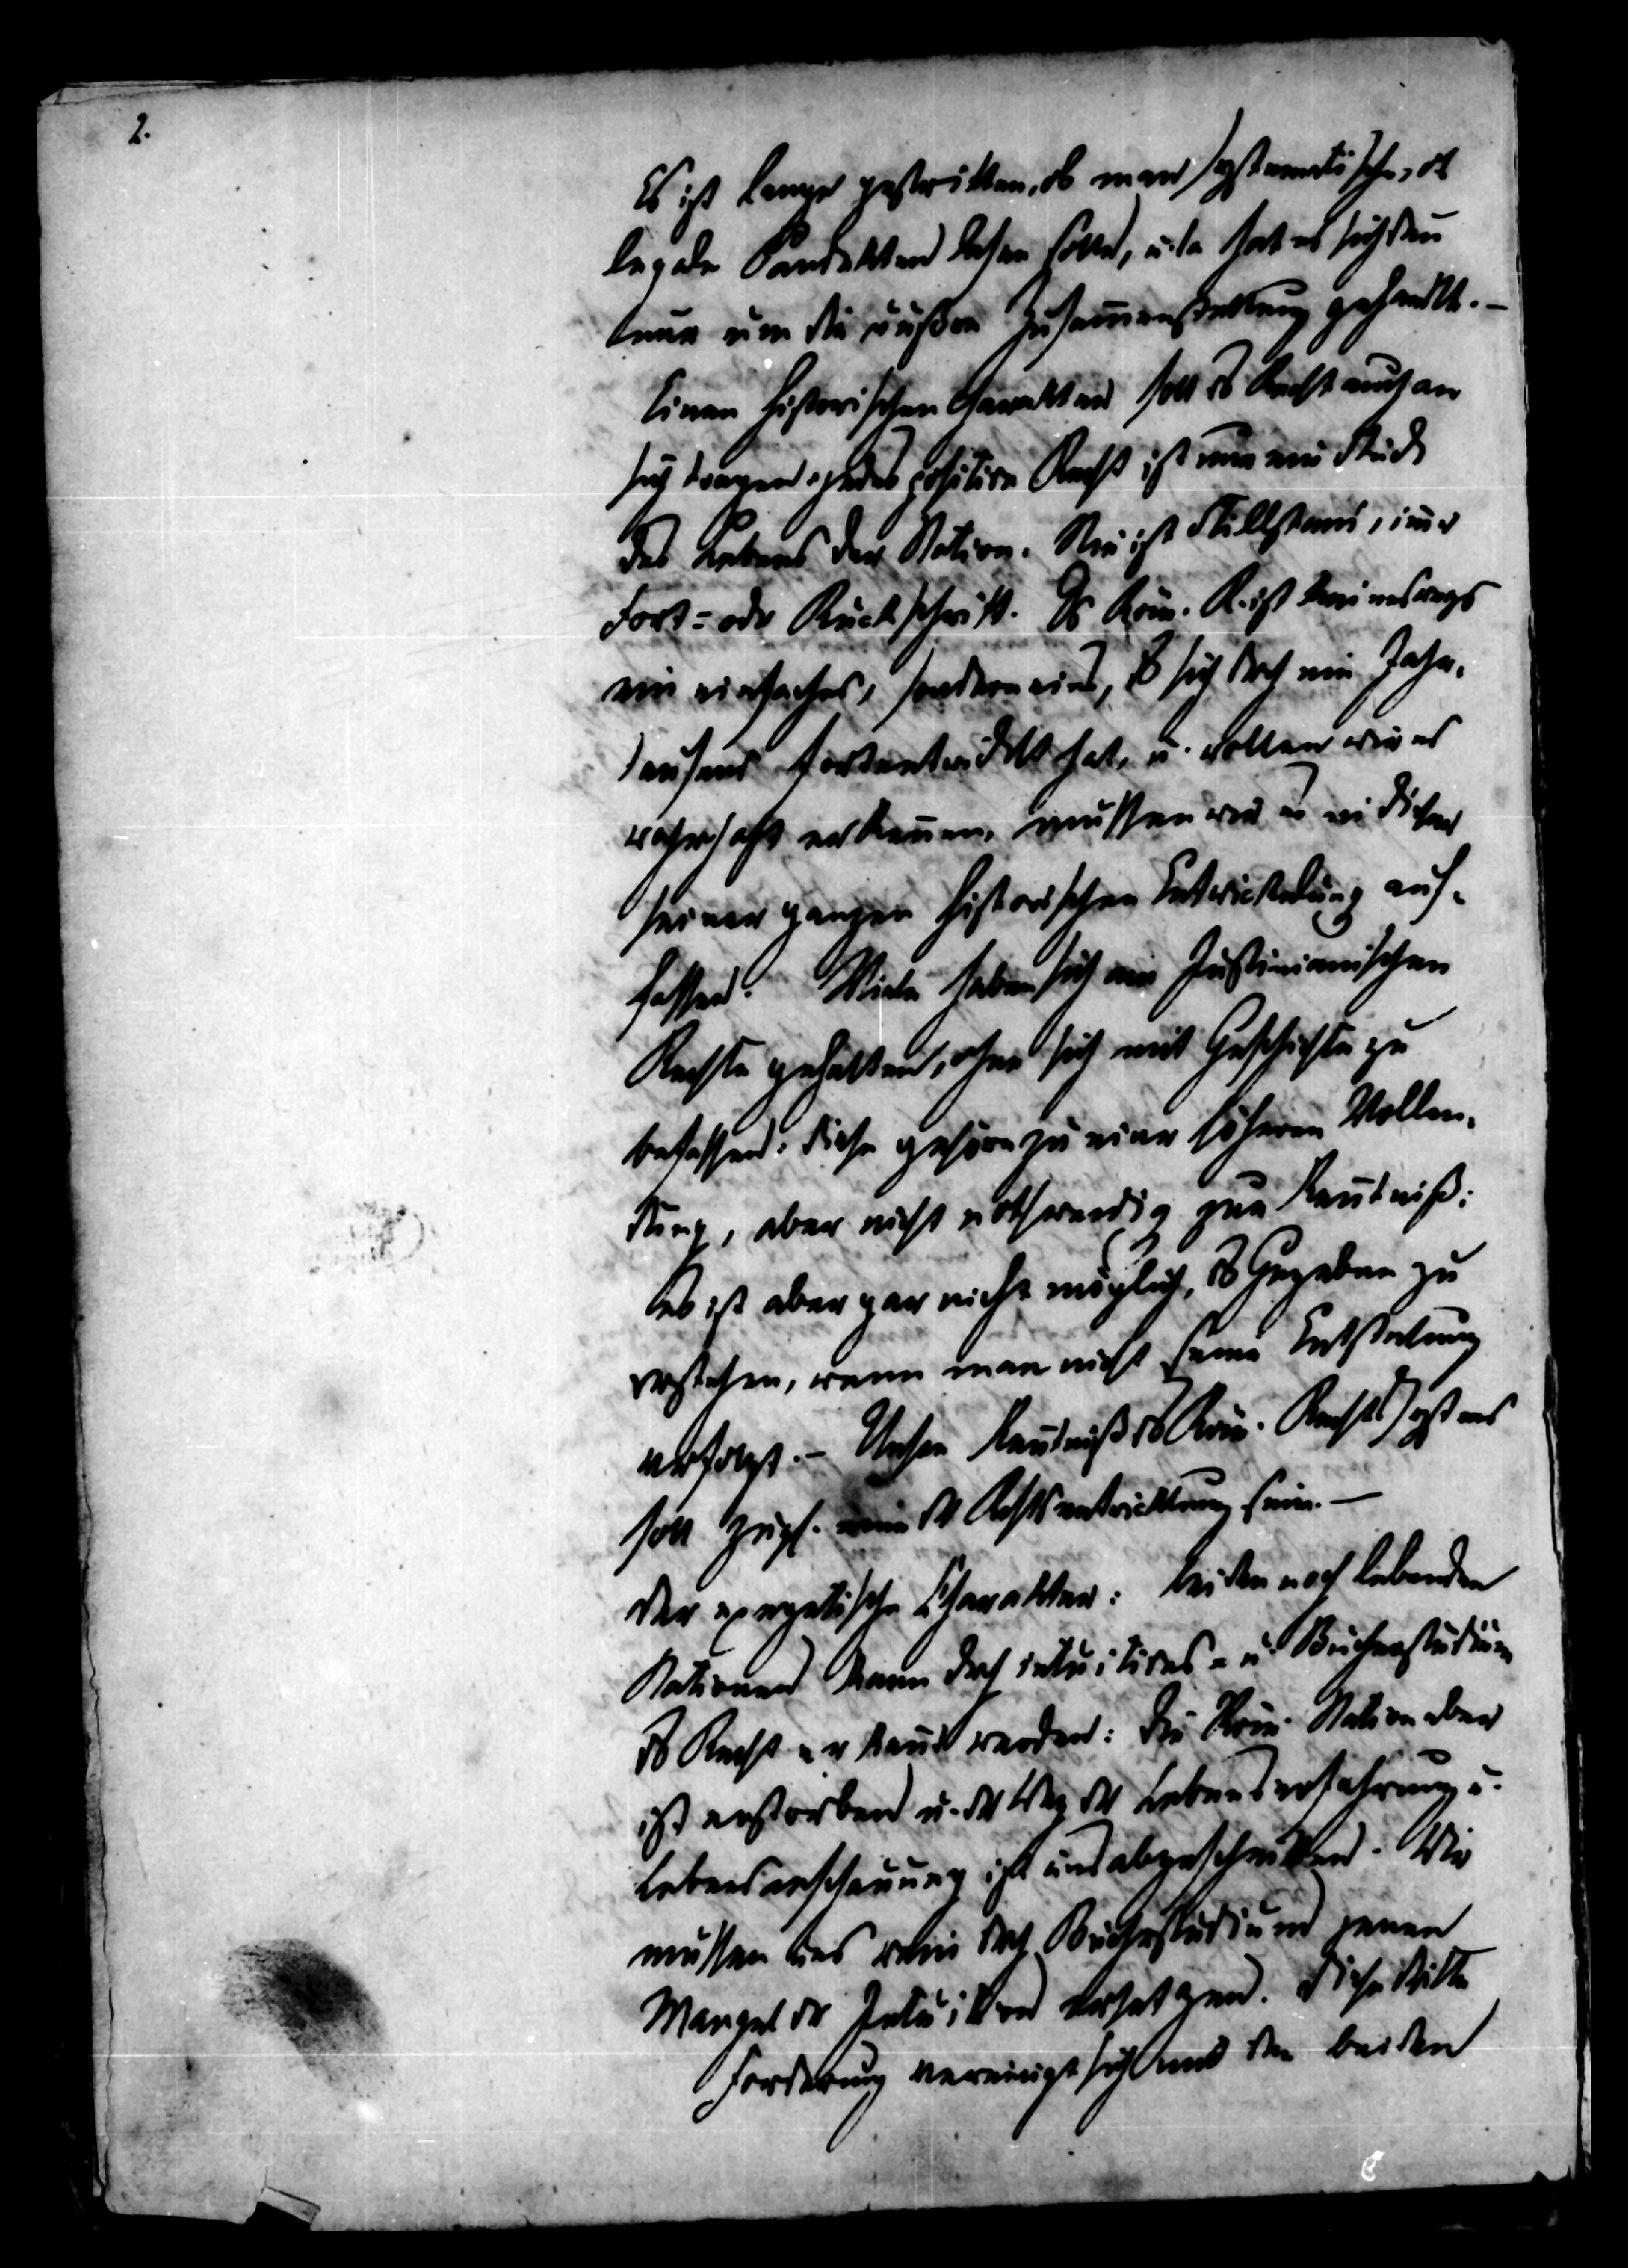 2.
Es ist lange gestritten, ob man systematische, od
legale Pandekten lesen solle, u. da hat es sich den
nur um die äußere Zusammenstellung gehandelt. –
Einen historischen Charakter soll ds Recht auch an
sich tragen. jedes positive Recht ist nur ein Stück
des Lebens der Nation. Nie ist Stillstand, imer
Fort- oder Rückschritt. Ds Röm. R. ist keineswegs
ein einfaches, sondern eins, ds sich dch ein Jahr-
tausend fortentwickelt hat, u. wollen wir es
wahrhaft erkennen, müssen wir es in dieser
seiner ganzen historischen Entwickelung auf-
fassen. Viele haben sich am Justinianischen
Rechte gehalten, ohne sich mit Geschichte zu
befassen: diese gehöre zu einer höheren Vollen-
dung, aber nicht nothwendig zur Kentniß:
es ist aber gar nicht möglich, ds Gegebene zu
verstehen, wenn man nicht seine Entstehung
verfolgt. – Unsere Kentniß ds Röm. Rechtssystems
soll zugl. eine dr Rechtsentwicklung sein. –
Der exegetische Charakter: bei den noch lebenden
Nationen kann dch intuitives- u. Bücherstudium
ds Recht erkant werden: die Röm. Nation aber
ist erstorben u. dr Weg dr Lebenserfahrung u.
Lebensanschauung ist uns abgeschnitten. Wir
müssen uns rein dch Bücherstudium jenen
Mangel dr Intuition ersetzen. Diese dritte
Forderung vereinigt sich mit den beiden